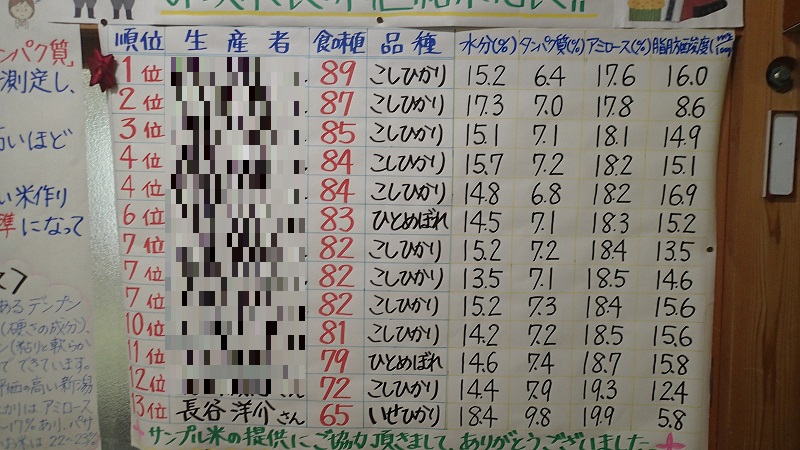 順位 生産者 食味値 品種 水分(%) タンパク質(%) アミロース(%) 脂肪酸度(mg/100g)
1位 89 こしひかり 15.2 6.4 17.6 16.0
2位 87 こしひかり 17.3 7.0 17.8 8.6
3位 85 こしひかり 15.1 7.1 18.1 14.9
4位 84 こしひかり 15.7 7.2 18.2 15.1
4位 84 こしひかり 14.8 6.8 18.2 16.9
6位 83 ひとめぼれ 14.5 7.1 18.3 15.2
7位 82 こしひかり 15.2 7.2 18.4 13.5
7位 82 こしひかり 13.5 7.1 18.5 14.6
7位 82 こしひかり 15.2 7.3 18.4 15.6
10位 81 こしひかり 14.2 7.2 18.5 15.6
11位 79 ひとめぼれ 14.6 7.4 18.7 15.8
12位 さん 72 こしひかり 14.4 7.9 19.3 12.4
13位 長谷洋介さん 65 いせひかり 18.4 9.8 19.9 5.8
サンプル米の提供にご協力頂きまして、ありがとうございました。
ンパク質
測定し、
いほど
い米作り
準になって
あるデンプン
(硬さの成分)、
ン(粘りと軟らか
でできています。
評価の高い新潟
かりはアミロース
〜17%あり、パサ
お米は22〜23%